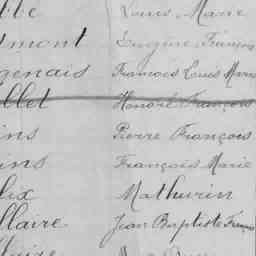 Louis Marie
mont Eugène François
genais François Louis Marie
llet Honoré François
ins Pierre François
ins François Marie
lix Mathurin
llaire Jean Baptiste François